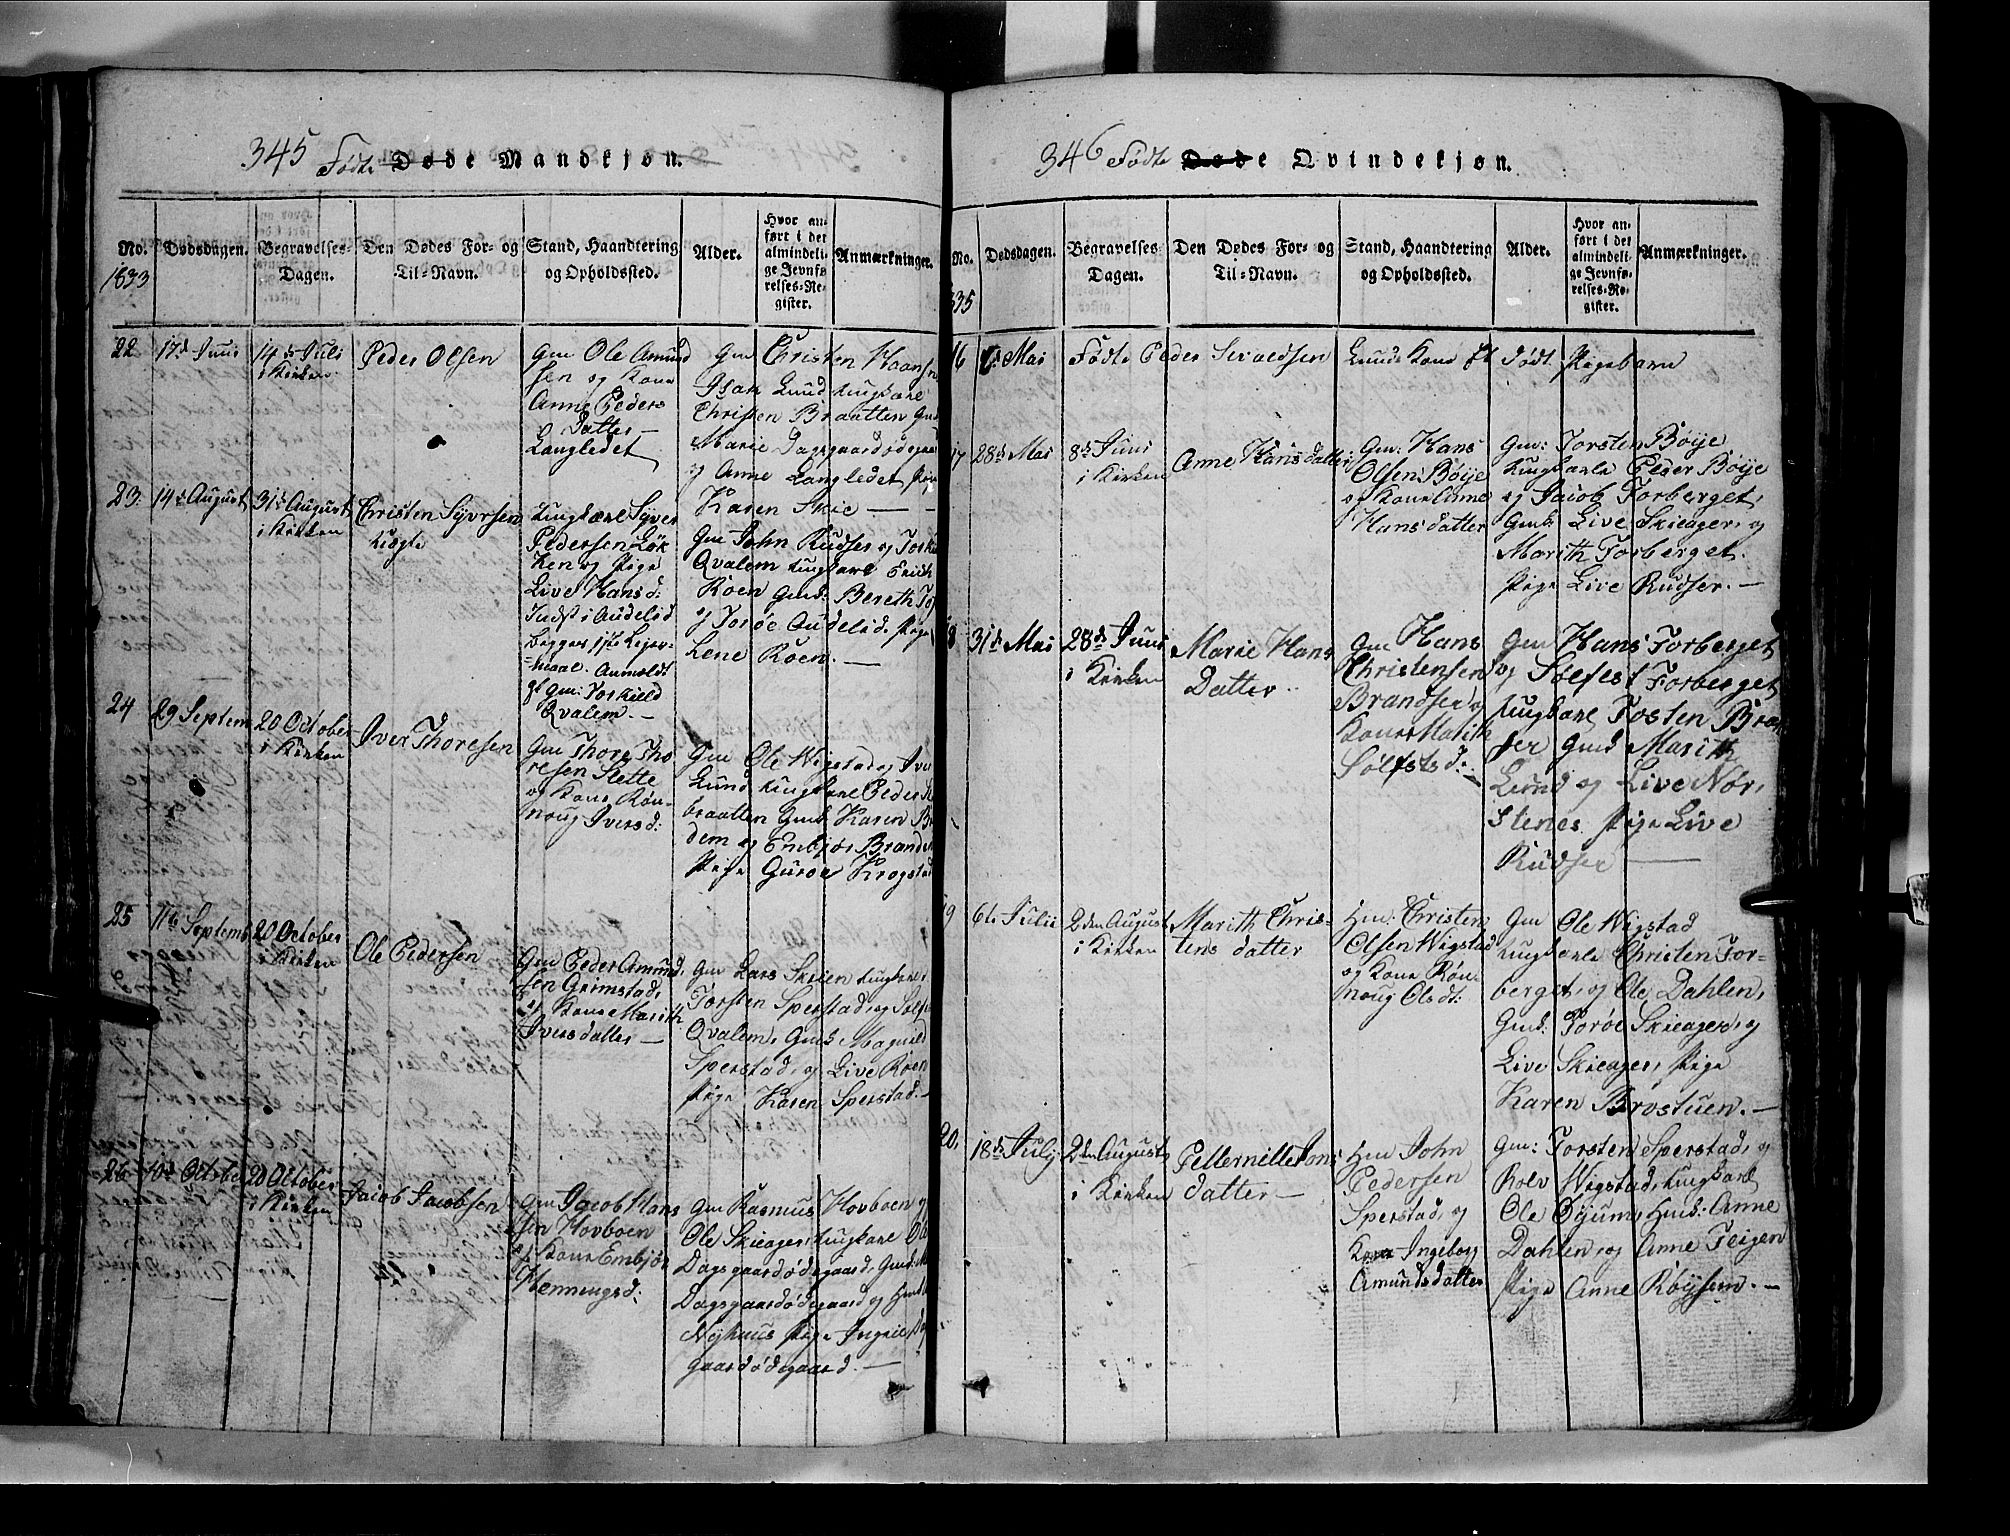 345 Fødte Døde Mandkjøn.
No. 1833
Dødsdagen.
Begravelses-
Dagen.
Den Dødes For- og
Til-Navn.
Stand, Haandtering
og Opholdssted.
Alder.
Hvor an-
ført i det
almindeli-
ge Jevnfø-
relses-Re-
gister.
Anmærkninger.
22
17d Juni
14de Juli
i Kirken
Peder Olsen
Gm Ole Amund
sen og Kone
Anne Peders
Datter
Langledet
Gm Christen Haansn
Isak Lund Ungkarl
Christen Braatten Gmk
Marie Dagsgaardødegaar
og Anne Langledet Pige
Karen Skie —
23.
14de August
31de August
i Kirken
Christen Syversen
uægte
Ungkarl Syver
Pedersen Løk
ken og Pige
Live Hansd:
Indst i Audelsd
begges 1ste Lejer-
maal. Anmeldt
af Gm: Torkield
Qvalem. —
Gm John Rudser og Torki
Qvalem Ungkarl Erich
Roen Gmk: Bereth To
og Toroe Audelsd. Pige
Lene Roen. —
24
29 Septem
20 October
i Kirken
Iver Thoresen
Gm Thore Tho
resen Slette
og Kone Røn-
noug Iversd:
Gm Ole Wigstad og Iver
Lund Ungkarl Peder S
braatten Gmk Karen B
dem og Embjør Brand
Pige Guroe Krogstad
25
11te Septemb
20 October
i Kirken
Ole Pedersen
Gm Peder Amund
sen Grimstad,
og Kone Marith
Iversdatter —
Gm Lars Skieen Ungkarl
Torsten Sperstad, og Sølfe
Qvalem, Gmk Magnild
Sperstad, og Live Roen
Pige Karen Sperstad. —
26
10de October
20 October
i Kirken
Jacob Jacobsen
Gm Jacob Hans
sen Hovboen
og Kone Embjør
Hemmingsd:
Gm Rasmus Hovboen og
Ole Skieager, Ungkarl Ol
Dagsgaardødegaard, Gmk
Dagsgaardødegaard og Hmk
Nyhuus Pige Ingrie Da
gaardødegaard. —
346 Fødte Døde Qvindekjøn.
No.
Dødsdagen.
Begravelses-
Dagen.
Den Dødes For- og
Til-Navn.
Stand, Haandtering
og Opholdssted.
Alder.
Hvor an-
ført i det
almindeli-
ge Jevnfø-
relses-Re-
gister.
Anmærkninger.
16
Mai
Fødte Peder Sivaldsen Lunds Kone et dødt Pigebarn
17
28de Mai
8de Juni
i Kirken
Anne Hansdatter
Gm: Hans
Olsen Bøije
og Kone Anne
Hansdatter
Gm: Torsten Bøije
Ungkarle Peder Bøije
og Jacob Forberget,
Gmk: Live Skieager, og
Marith Forberget.
Pige Live Rudser. —
18
31te Mai
28de Juni
i Kirken
Marie Hans
Datter
Gm Hans
Christensen
Brandser og
Kone Marith
Sølfstsd:
Gm Hans Forberget
og Sølfest Forberget
Ungkarl Tosten Bran
ser Gmk Marith
Lund og Live Nør,
stenes, Pige Live
Rudser —
19
6te Julii
2den August
i Kirken
Marith Chris-
tens datter
Hm: Christen
Olsen Wigstad
og Kone Røn-
noug Olsdt:
Gm Ole Wigstad
Ungkarle Christen For-
berget, og Ole Dahlen,
Gmk: Toroe Skieager, og
Live Skieager, Pige
Karen Brostuen. —
20,
18de July
2den August
i Kirken
Pellernille Jons
datter —
Hm John
Pedersen
Sperstad, og
Kone Ingebor
Amundsdatter
Gm: Torsten Sperstad, og
Rolv Wigstad, Ungkarl
Ole Øyum, Hmk: Anne
Dahlen, og Anne Teigen
Pige Anne Røysem. —